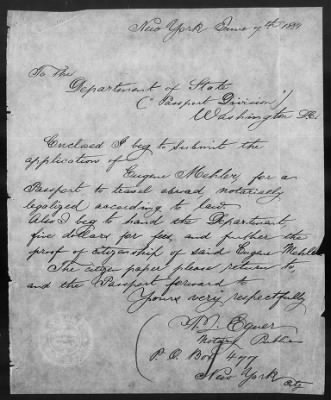 New York June 7th 1899
To The
Department of State
("Passport Division")
Washington D.C.
Enclosed I beg to submit the
application of
Eugene Mehler, for a
Passport to travel abroad notarially
legalized according to law.
Also I beg to hand the Department
five dollars for fees, and further the
proof of citizenship of said Eugene Mehler
The citizen paper please return to
and the Passport forward to
Yours very respectfully
M. Egner
Notary Public
P. O. Box 477
New York City